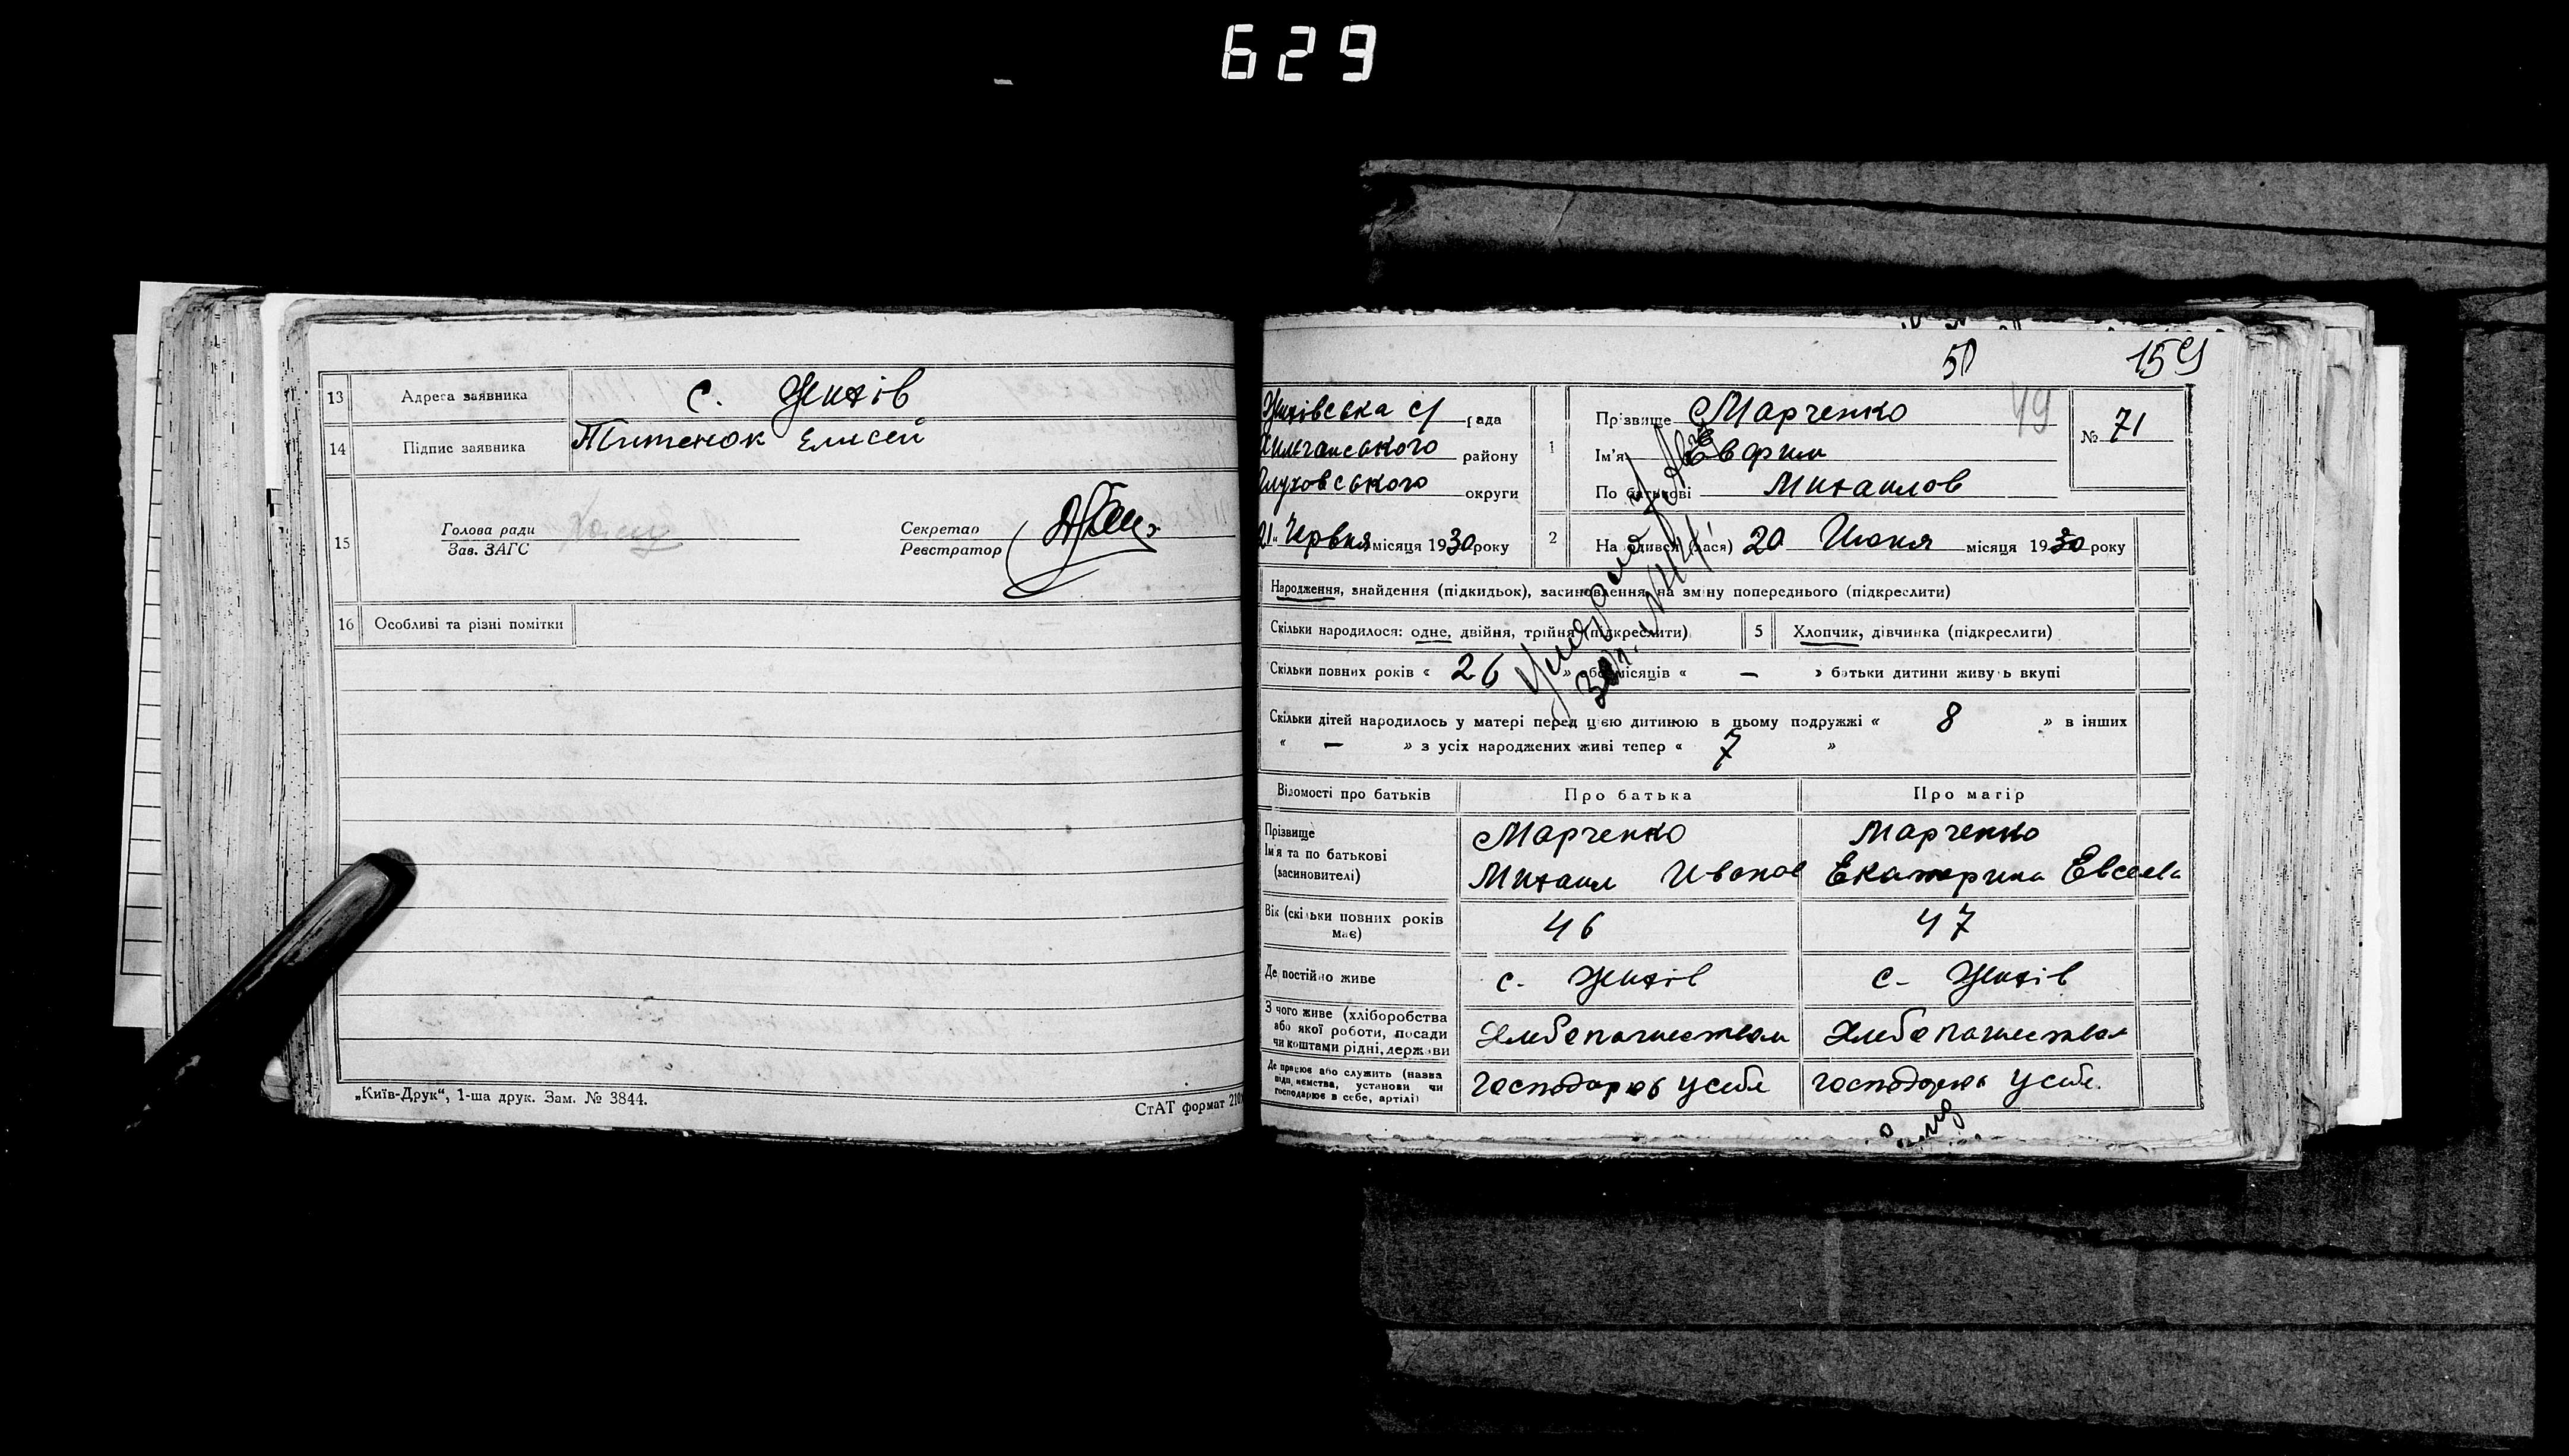 629
13 Адреса заявника с. Жихів
14 Підпис заявника Титенок Елисей
15 Голова ради Зав. ЗАГС Секретар Реєстратор
16 Особливі та різні помітки
„Київ-Друк“, 1-ша друк. Зам. № 3844.
СтАТ формат 210
50 159
49
Жихівська с/ рада
Хильчанського району
Глуховського округи
1 Прізвище Марченко
Ім'я Евфим
По батькові Михаилов
№ 71
21 Червня місяця 1930 року
2 Народився (лася) 20 Июня місяця 1930 року
Народження, знайдення (підкидьок), засиновлення, на зміну попереднього (підкреслити)
Скільки народилося: одне, двійня, трійня (підкреслити) 5 Хлопчик, дівчинка (підкреслити)
Скільки повних років « 26 » або місяців « — » батьки дитини живуть вкупі
Скільки дітей народилось у матері перед цією дитиною в цьому подружжі « 8 » в інших
« — » з усіх народжених живі тепер « 7 »
Відомості про батьків Про батька Про матір
Прізвище Марченко Марченко
Ім'я та по батькові (засиновителі) Михаил Иванов Екатерина Евсеева
Вік (скільки повних років має) 46 47
Де постійно живе с. Жихів с. Жихів
З чого живе (хліборобства або якої роботи, посади чи коштами рідні, держави Хлебопашеством Хлебопашеством
Де працює або служить (назва підприємства, установи чи господарює в себе, артілі) господарює у себе господарює у себе